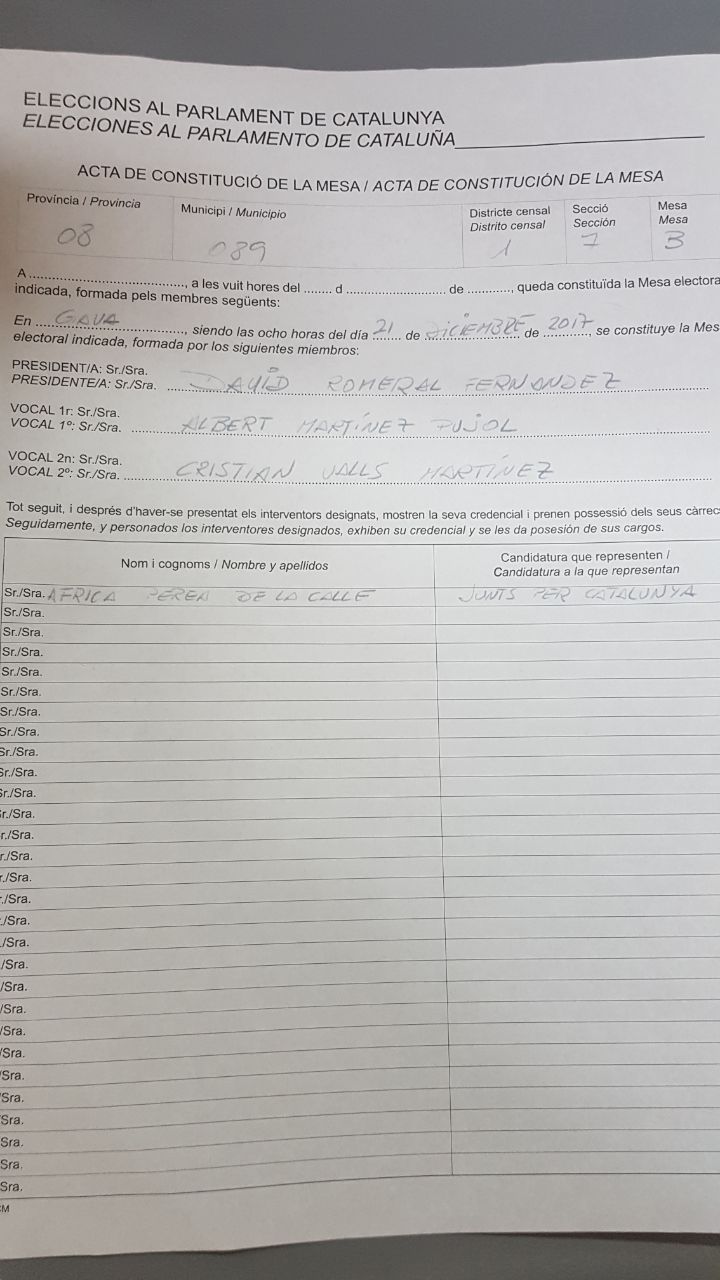 ELECCIONS AL PARLAMENT DE CATALUNYA
ELECCIONES AL PARLAMENTO DE CATALUÑA
ACTA DE CONSTITUCIÓ DE LA MESA / ACTA DE CONSTITUCIÓN DE LA MESA
Província / Provincia Municipi / Municipio Districte censal Secció Mesa
Distrito censal Sección Mesa
08 089 1 7 B
A ........................................, a les vuit hores del ........ d ......................... de ..........., queda constituïda la Mesa electora
indicada, formada pels membres següents:
En GAVA, siendo las ocho horas del día 21 de DICIEMBRE de 2017, se constituye la Mes
electoral indicada, formada por los siguientes miembros:
PRESIDENT/A: Sr./Sra.
PRESIDENTE/A: Sr./Sra. DAVID ROMERAL FERNANDEZ
VOCAL 1r: Sr./Sra.
VOCAL 1º: Sr./Sra. ALBERT MARTÍNEZ PUJOL
VOCAL 2n: Sr./Sra.
VOCAL 2º: Sr./Sra. CRISTIAN VALLS MARTÍNEZ
Tot seguit, i després d'haver-se presentat els interventors designats, mostren la seva credencial i prenen possessió dels seus càrrecs
Seguidamente, y personados los interventores designados, exhiben su credencial y se les da posesión de sus cargos.
Nom i cognoms / Nombre y apellidos Candidatura que representen /
Candidatura a la que representan
Sr./Sra. AFRICA PEREA DE LA CALLE JUNTS PER CATALUNYA
Sr./Sra.
Sr./Sra.
Sr./Sra.
Sr./Sra.
Sr./Sra.
Sr./Sra.
Sr./Sra.
Sr./Sra.
Sr./Sra.
Sr./Sra.
r./Sra.
r./Sra.
r./Sra.
r./Sra.
./Sra.
./Sra.
/Sra.
/Sra.
/Sra.
/Sra.
/Sra.
/Sra.
/Sra.
/Sra.
Sra.
Sra.
Sra.
Sra.
CM